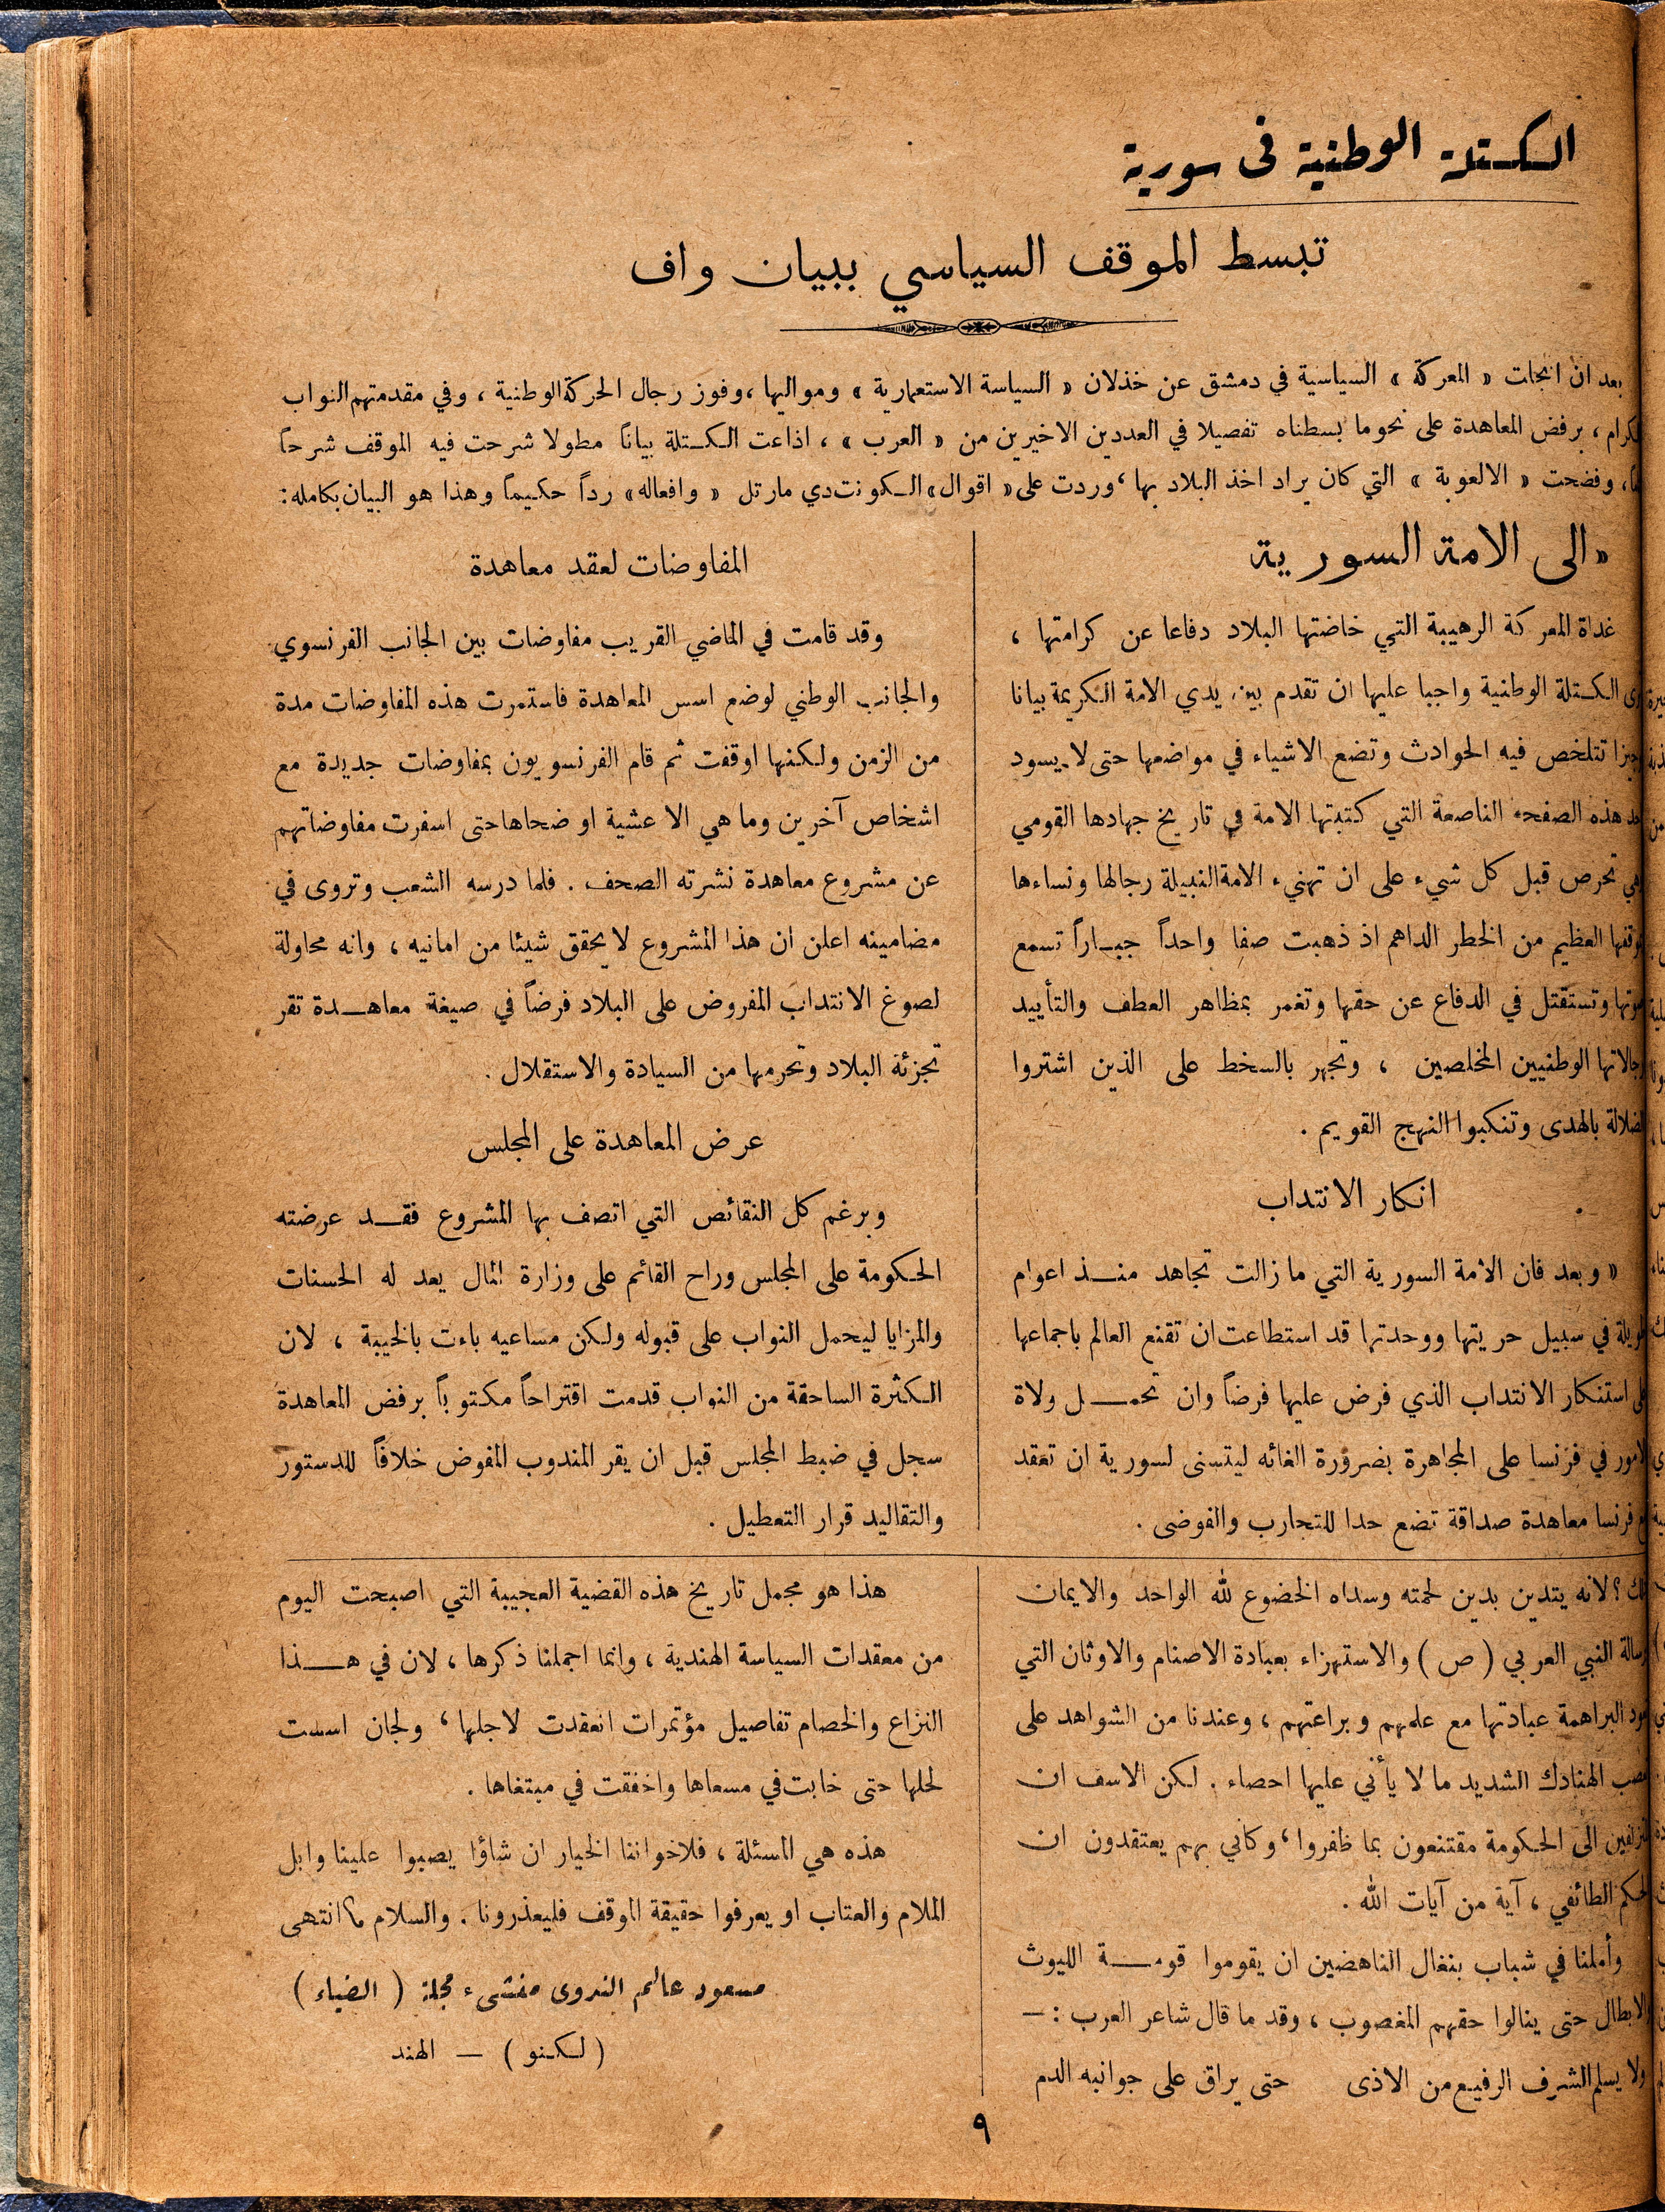 الكتلة الوطنية في سورية
تبسط الموقف السياسي ببيان واف
بعد ان انجلت « المعركة » السياسية في دمشق عن خذلان « السياسة الاستعمارية » ومواليها ، وفوز رجال الحركة الوطنية ، وفي مقدمتهم النواب
برفض المعاهدة على نحو ما بسطناه تفصيلا في العددين الاخيرين من « العرب » ، اذاعت الكتلة بياناً مطولا شرحت فيه الموقف شرحاً
وفضحت « الالعوبة » التي كان يراد اخذ البلاد بها ، وردت على « اقوال » الكونت دي مارتل « وافعاله » رداً حكيماً وهذا هو البيان بكامله :
« الى الامة السورية
غداة المعركة الرهيبة التي خاضتها البلاد دفاعا عن كرامتها ،
الكتلة الوطنية واجبا عليها ان تقدم بين يدي الامة الكريمة بيانا
تتلخص فيه الحوادث وتضع الاشياء في مواضعها حتى لا يسود
هذه الصفحة الناصعة التي كتبتها الامة في تاريخ جهادها القومي
تحرص قبل كل شيء على ان تهنيء الامة النبيلة رجالها ونساءها
العظيم من الخطر الداهم اذ ذهبت صفا واحداً جباراً تسمع
وتستقتل في الدفاع عن حقها وتغمر بمظاهر العطف والتأييد
رجالاتها الوطنيين المخلصين ، وتجهر بالسخط على الذين اشتروا
الضلالة بالهدى وتنكبوا النهج القويم .
انكار الانتداب
« وبعد فان الامة السورية التي ما زالت تجاهد منذ اعوام
طويلة في سبيل حريتها ووحدتها قد استطاعت ان تقنع العالم باجماعها
على استنكار الانتداب الذي فرض عليها فرضاً وان تحمل ولاة
الامور في فرنسا على المجاهرة بضرورة الغائه ليتسنى لسورية ان تعقد
مع فرنسا معاهدة صداقة تضع حدا للتجارب والفوضى .
المفاوضات لعقد معاهدة
وقد قامت في الماضي القريب مفاوضات بين الجانب الفرنسوي
والجانب الوطني لوضع اسس المعاهدة فاستمرت هذه المفاوضات مدة
من الزمن ولكنها اوقفت ثم قام الفرنسويون بمفاوضات جديدة مع
اشخاص آخرين وما هي الا عشية او ضحاها حتى اسفرت مفاوضاتهم
عن مشروع معاهدة نشرته الصحف . فلما درسه الشعب وتروى في
مضامينه اعلن ان هذا المشروع لا يحقق شيئا من امانيه ، وانه محاولة
لصوغ الانتداب المفروض على البلاد فرضاً في صيغة معاهدة تقر
تجزئة البلاد وتحرمها من السيادة والاستقلال .
عرض المعاهدة على المجلس
وبرغم كل النقائص التي اتصف بها المشروع فقد عرضته
الحكومة على المجلس وراح القائم على وزارة المال يعد له الحسنات
والمزايا ليحمل النواب على قبوله ولكن مساعيه باءت بالخيبة ، لان
الكثرة الساحقة من النواب قدمت اقتراحاً مكتوباً برفض المعاهدة
سجل في ضبط المجلس قبل ان يقر المندوب المفوض خلافاً للدستور
والتقاليد قرار التعطيل .
لانه يتدين بدين لحمته وسداه الخضوع لله الواحد والايمان
النبي العربي ( ص ) والاستهزاء بعبادة الاصنام والاوثان التي
البراهمة عبادتها مع علمهم وبراعتهم ، وعندنا من الشواهد على
الهنادك الشديد ما لا يأتي عليها احصاء . لكن الاسف ان
الى الحكومة مقتنعون بما ظفروا ، وكاني بهم يعتقدون ان
الحكم الطائفي ، آية من آيات الله .
وأملنا في شباب بنغال الناهضين ان يقوموا قومة الليوث
الابطال حتى ينالوا حقهم المغصوب ، وقد ما قال شاعر العرب : —
ولا يسلم الشرف الرفيع من الاذى حتى يراق على جوانبه الدم
هذا هو مجمل تاريخ هذه القضية العجيبة التي اصبحت اليوم
من معقدات السياسة الهندية ، وانما اجملنا ذكرها ، لان في هذا
النزاع والخصام تفاصيل مؤتمرات انعقدت لاجلها ، ولجان اسست
لحلها حتى خابت في مسعاها واخفقت في مبتغاها .
هذه هي المسئلة ، فلاخواننا الخيار ان شاؤا يصبوا علينا وابل
الملام والعتاب او يعرفوا حقيقة الموقف فليعذرونا . والسلام انتهى
مسعود عالم الندوى منشىء مجلة ( الضياء )
( لكنو ) — الهند
٩